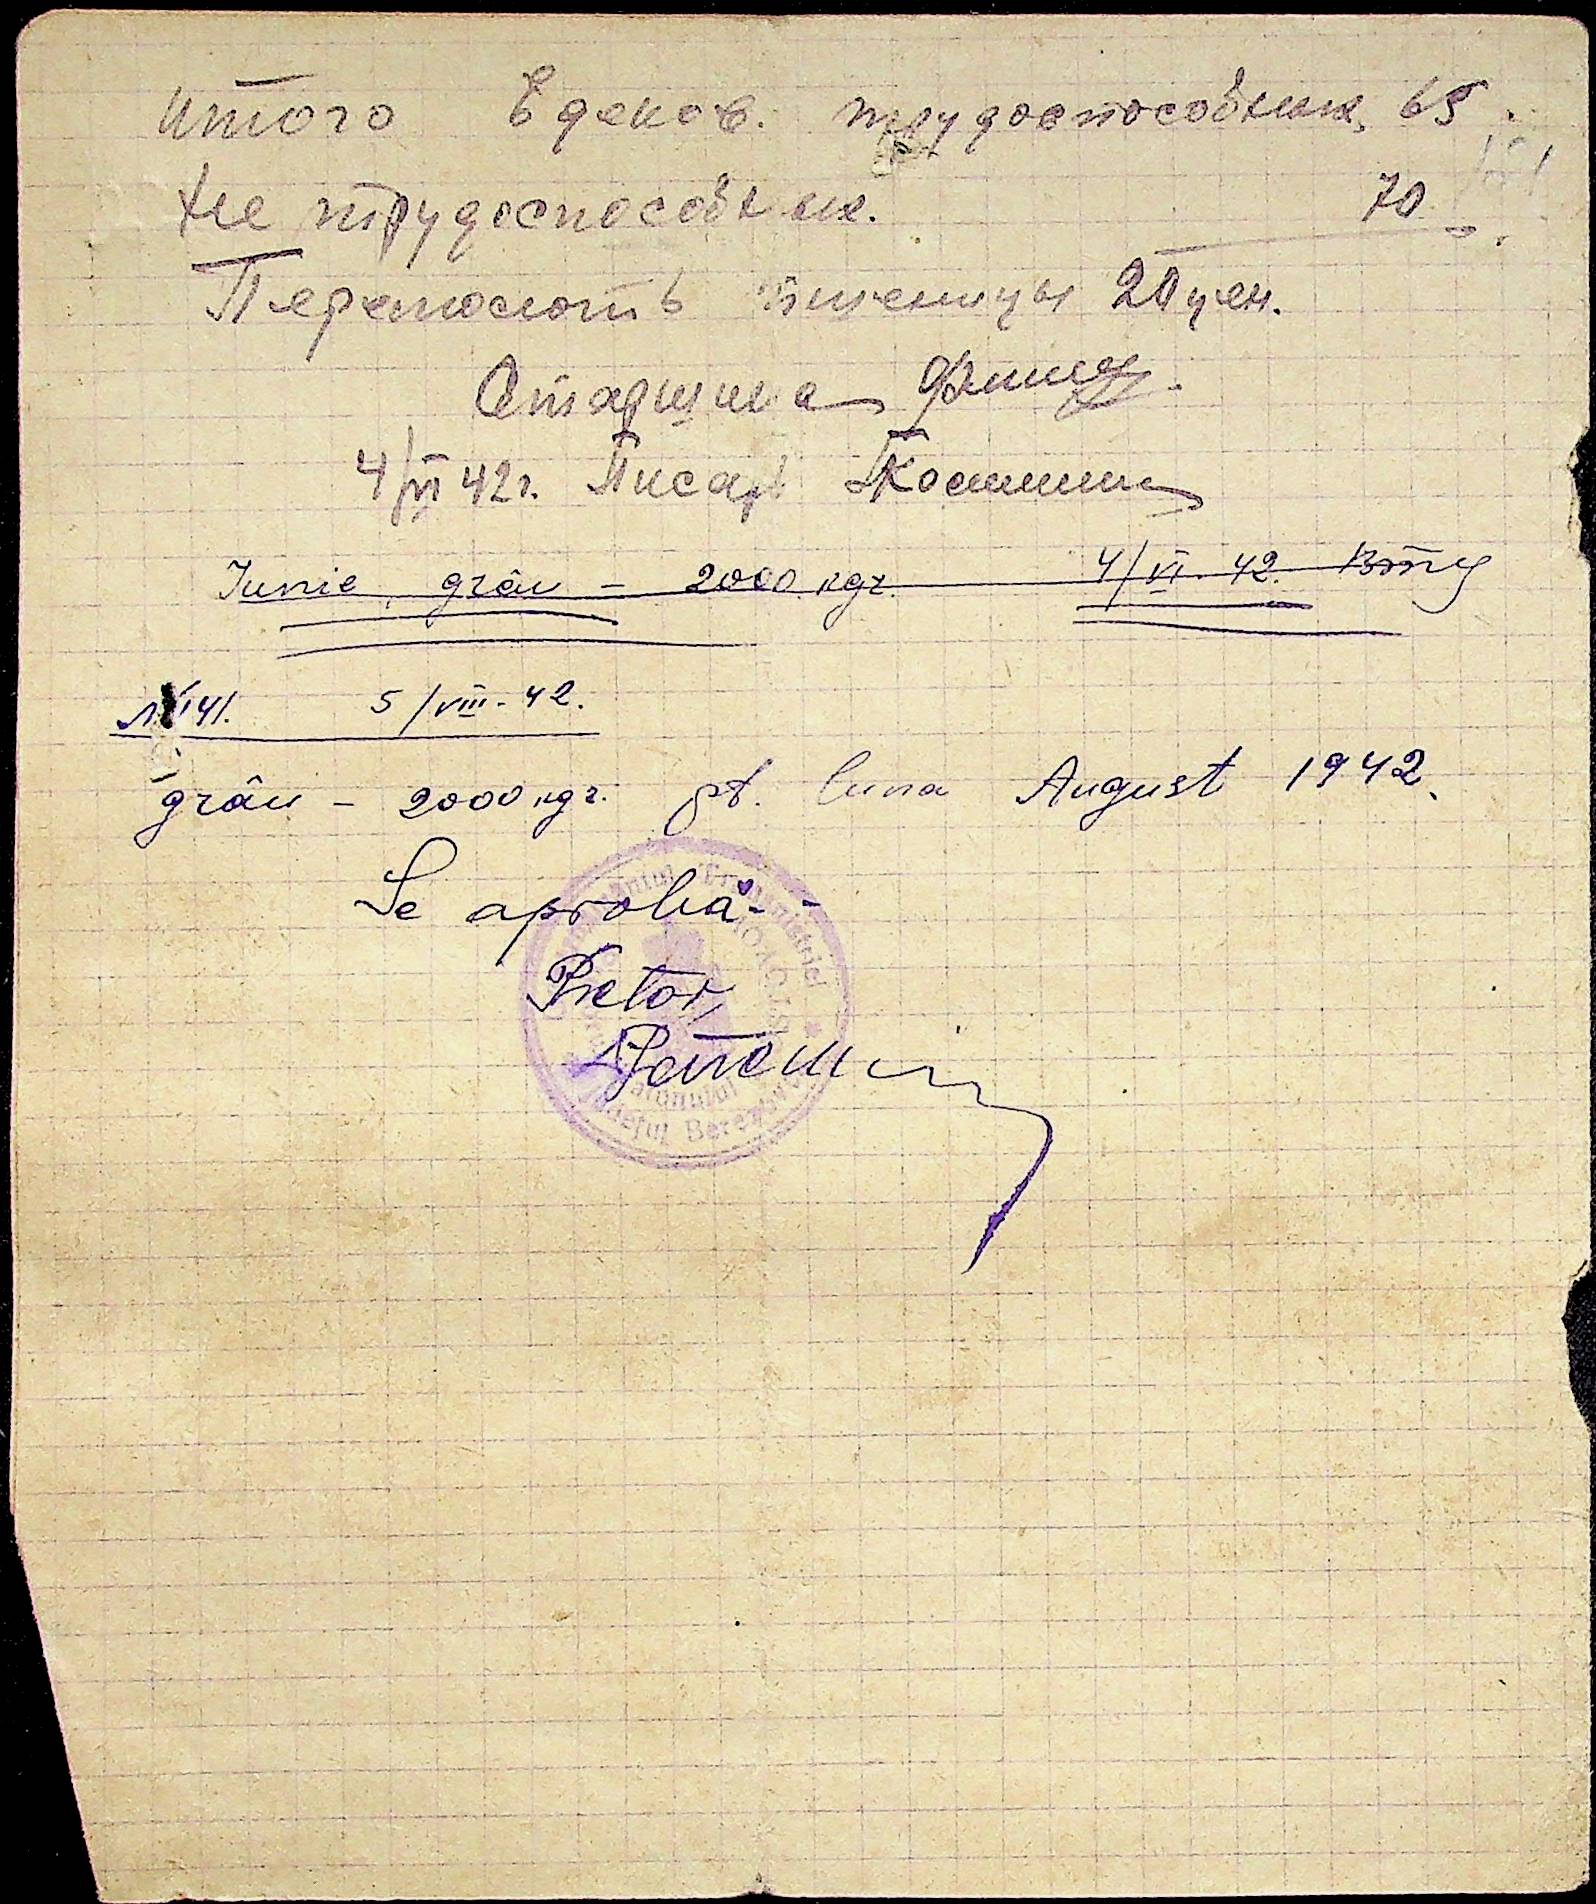 итого Едеков. трудоспособных 65.
Не трудоспособных. 70
Перемолоть пшеницы 20 цен.
Старшина
4/VI 42г. Писарь
Iunie, grâu – 2000 kgr. 4/VI. 42.
№141. 5/VIII-42.
grâu – 2000 kgr. pt. luna August 1942.
Se aprobă.-
Pretor,
Județul Berezovca